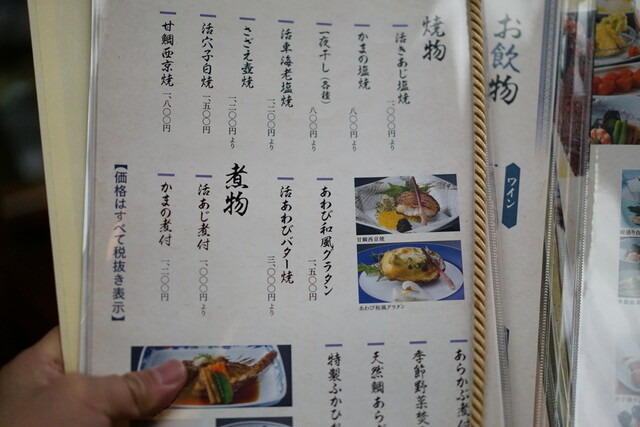 お飲物
ワイン
焼物
活きあじ塩焼 一、〇〇〇円より
かまの塩焼 八〇〇円より
一夜干し(各種) 八〇〇円より
活車海老塩焼 一、二〇〇円より
さざえ壺焼 一、二〇〇円より
活穴子白焼 一、五〇〇円
甘鯛西京焼 一、八〇〇円
あわび和風グラタン 一、五〇〇円
活あわびバター焼 三、〇〇〇円より
甘鯛西京焼
あわび和風グラタン
煮物
活あじ煮付 一、〇〇〇円より
かまの煮付 一、二〇〇円
【価格はすべて税抜き表示】
あらかぶ煮付
季節野菜焚
天然鯛あら
特製ふかひ